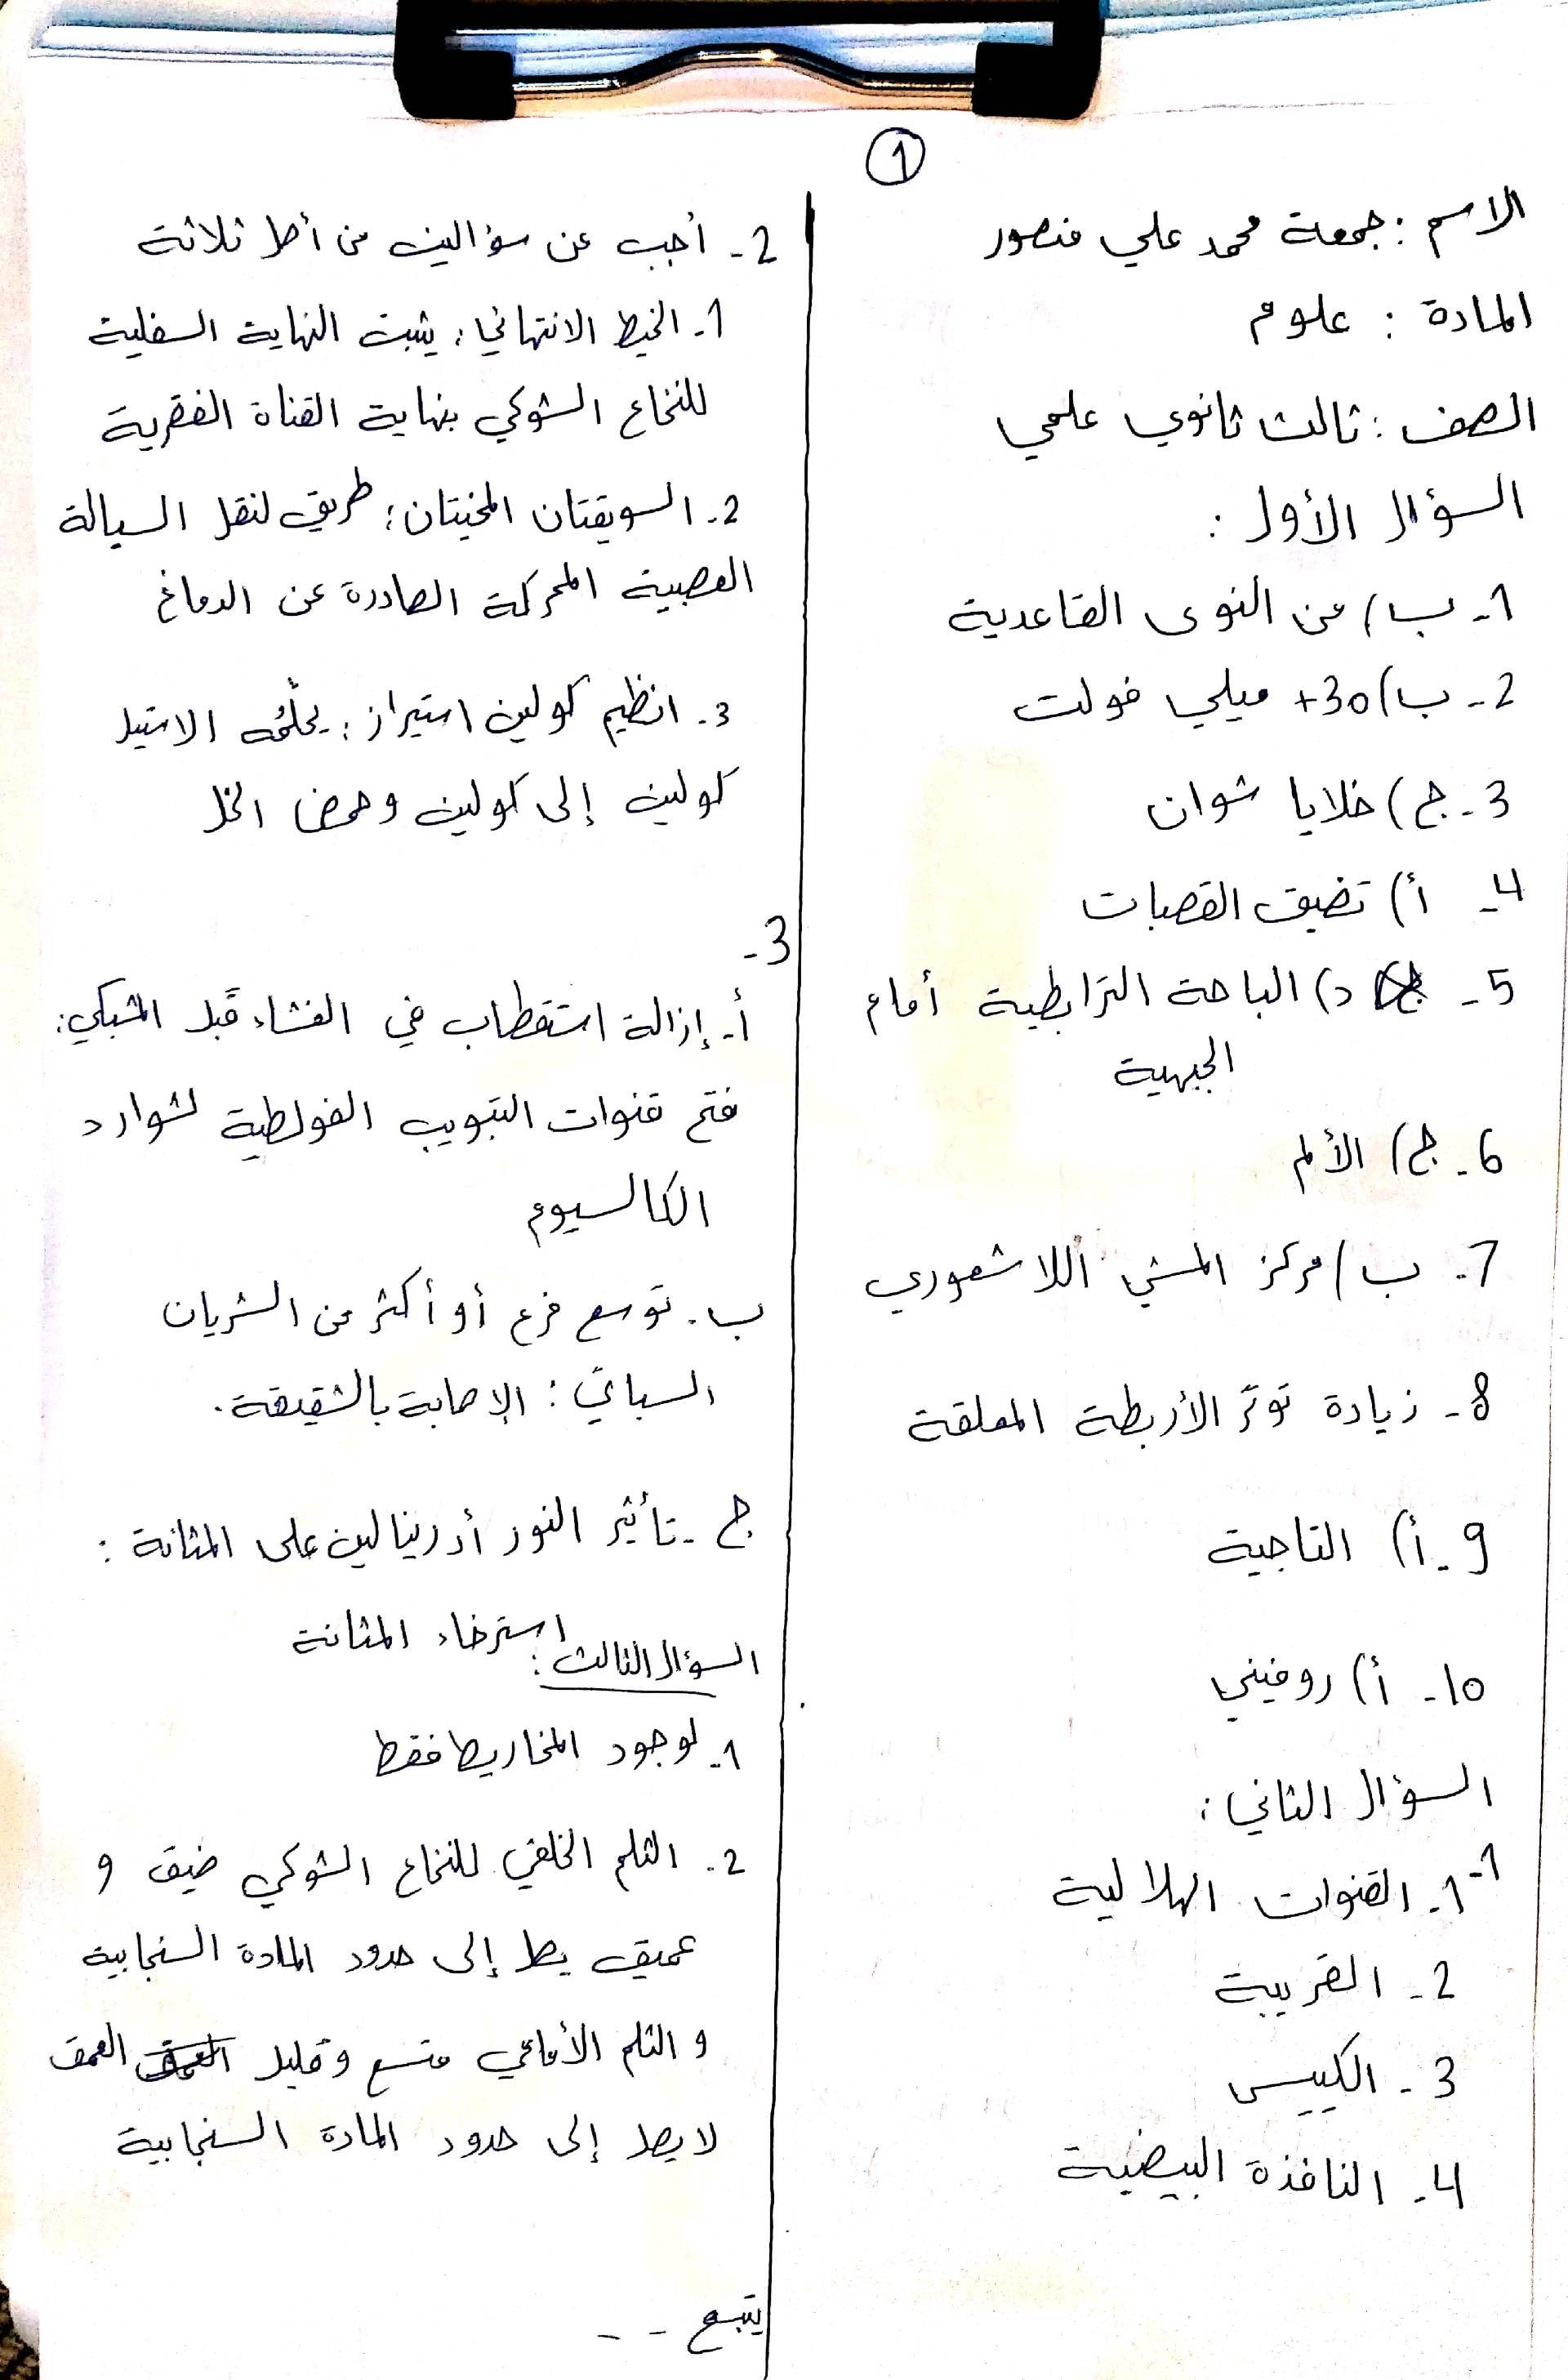 1
الاسم : جمعة محمد علي منصور
المادة : علوم
الصف : ثالث ثانوي علمي
السؤال الأول :
1- ب) من النوى القاعدية
2- ب) +30 ميلي فولت
3- ج) خلايا شوان
4- أ) تضيق القصبات
5- د) الباحة الترابطية أمام
الجبهية
6- ج) الألم
7- ب) مركز المشي اللاشعوري
8- زيادة توتر الأربطة المعلقة
9- أ) التاجية
10- أ) روفيني
السؤال الثاني :
1- 1- القنوات الهلالية
2- القريبة
3- الكييس
4- النافذة البيضية
2- أجب عن سؤالين من أصل ثلاثة
1- الخيط الانتهائي : يثبت النهاية السفلية
للنخاع الشوكي بنهاية القناة الفقرية
2- السويقتان المخيتان : طريق لنقل السيالة
العصبية المحركة الصادرة عن الدماغ
3- انظيم كولين استيراز : يحلمُه الاستيل
كولين إلى كولين وحمض الخل
3-
أ- إزالة استقطاب في الغشاء قبل المشبكي :
فتح قنوات التبويب الفولطية لشوارد
الكالسيوم
ب- توسع فرع أو أكثر من الشريان
السباتي : الإصابة بالشقيقة .
ج- تأثير النور أدرينالين على المثانة :
استرخاء المثانة
السؤال الثالث :
1- لوجود المخاريط فقط
2- الثلم الخلفي للنخاع الشوكي ضيق و
عميق يصل إلى حدود المادة السنجابية
و الثلم الأمامي متسع وقليل العمق
لا يصل إلى حدود المادة السنجابية
يتبع - -